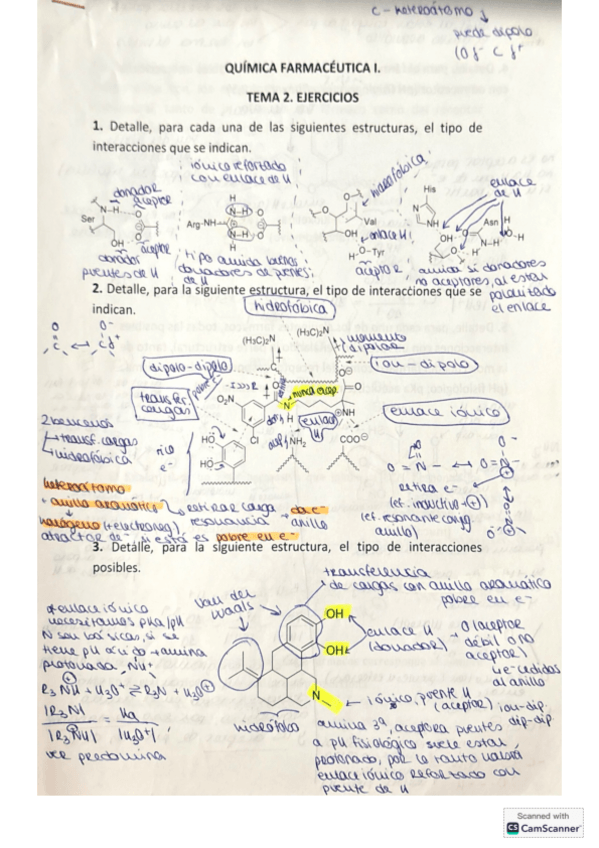 C - heteroátomo
puede dipolo
(O δ- C δ+
QUÍMICA FARMACÉUTICA I.
TEMA 2. EJERCICIOS
1. Detalle, para cada una de las siguientes estructuras, el tipo de
interacciones que se indican.
iónico reforzado
con enlace de H
hidrofóbica
enlace
de H
donador
aceptor
Ser
N-H
O
OH
Arg-NH
H
N-H
O
N-H
O
H
O
O
Val
OH
enlace H
H-O-Tyr
His
N
NH
OH
Asn
H
N-H
O-H
donador
aceptor
puentes de H
donadores de puentes
de H
aceptor
amida si donadores
no aceptores, al estar
el enlace
2. Detalle, para la siguiente estructura, el tipo de interacciones que se
indican.
hidrofóbica
(H₃C)₂N
(H₃C)₂N
momento
dipolar
dipolo-dipolo
ion-dipolo
transfec
cargas
O₂N
N
nunca acep.
O
NH
enlace
H
enlace iónico
Cl
NH₂
COO⊖
HO
HO
rico
e-
2 bencenos
transf. cargas
hidrofóbica
heteroátomo
+ anillo aromático
halógeno (+electroneg)
retirar carga
resonancia
da e-
anillo
atractor de e-
si está es pobre en e-
O=N- ↔ O=N-
retira e-
(ef. inductivo -⊕)
(ef. resonante conj.
anillo)
3. Detalle, para la siguiente estructura, el tipo de interacciones
posibles.
transferencia
de cargas con anillo aromático
pobre en e-
Van der
Waals
OH
OH
enlace H
(donador)
O (aceptor
débil o no
aceptor)
4e- cedidos
al anillo
N
iónico, puente H
(aceptor) ion-dip.
dip-dip
hidrófobos
enlace iónico
necesitamos pKa/pH
N son básicas, si se
tiene pH ácido → amina
protonada NH+
R₃NH + H₂O ⇌ R₃N + H₃O⊕
|R₃N| = Ka
|R₃NH| |H₃O+|
ver predomina
amina 3ª, aceptora puentes
a pH fisiológico suele estar
protonado, por lo tanto habrá
enlace iónico reforzado con
puente de H
Scanned with
CS CamScanner